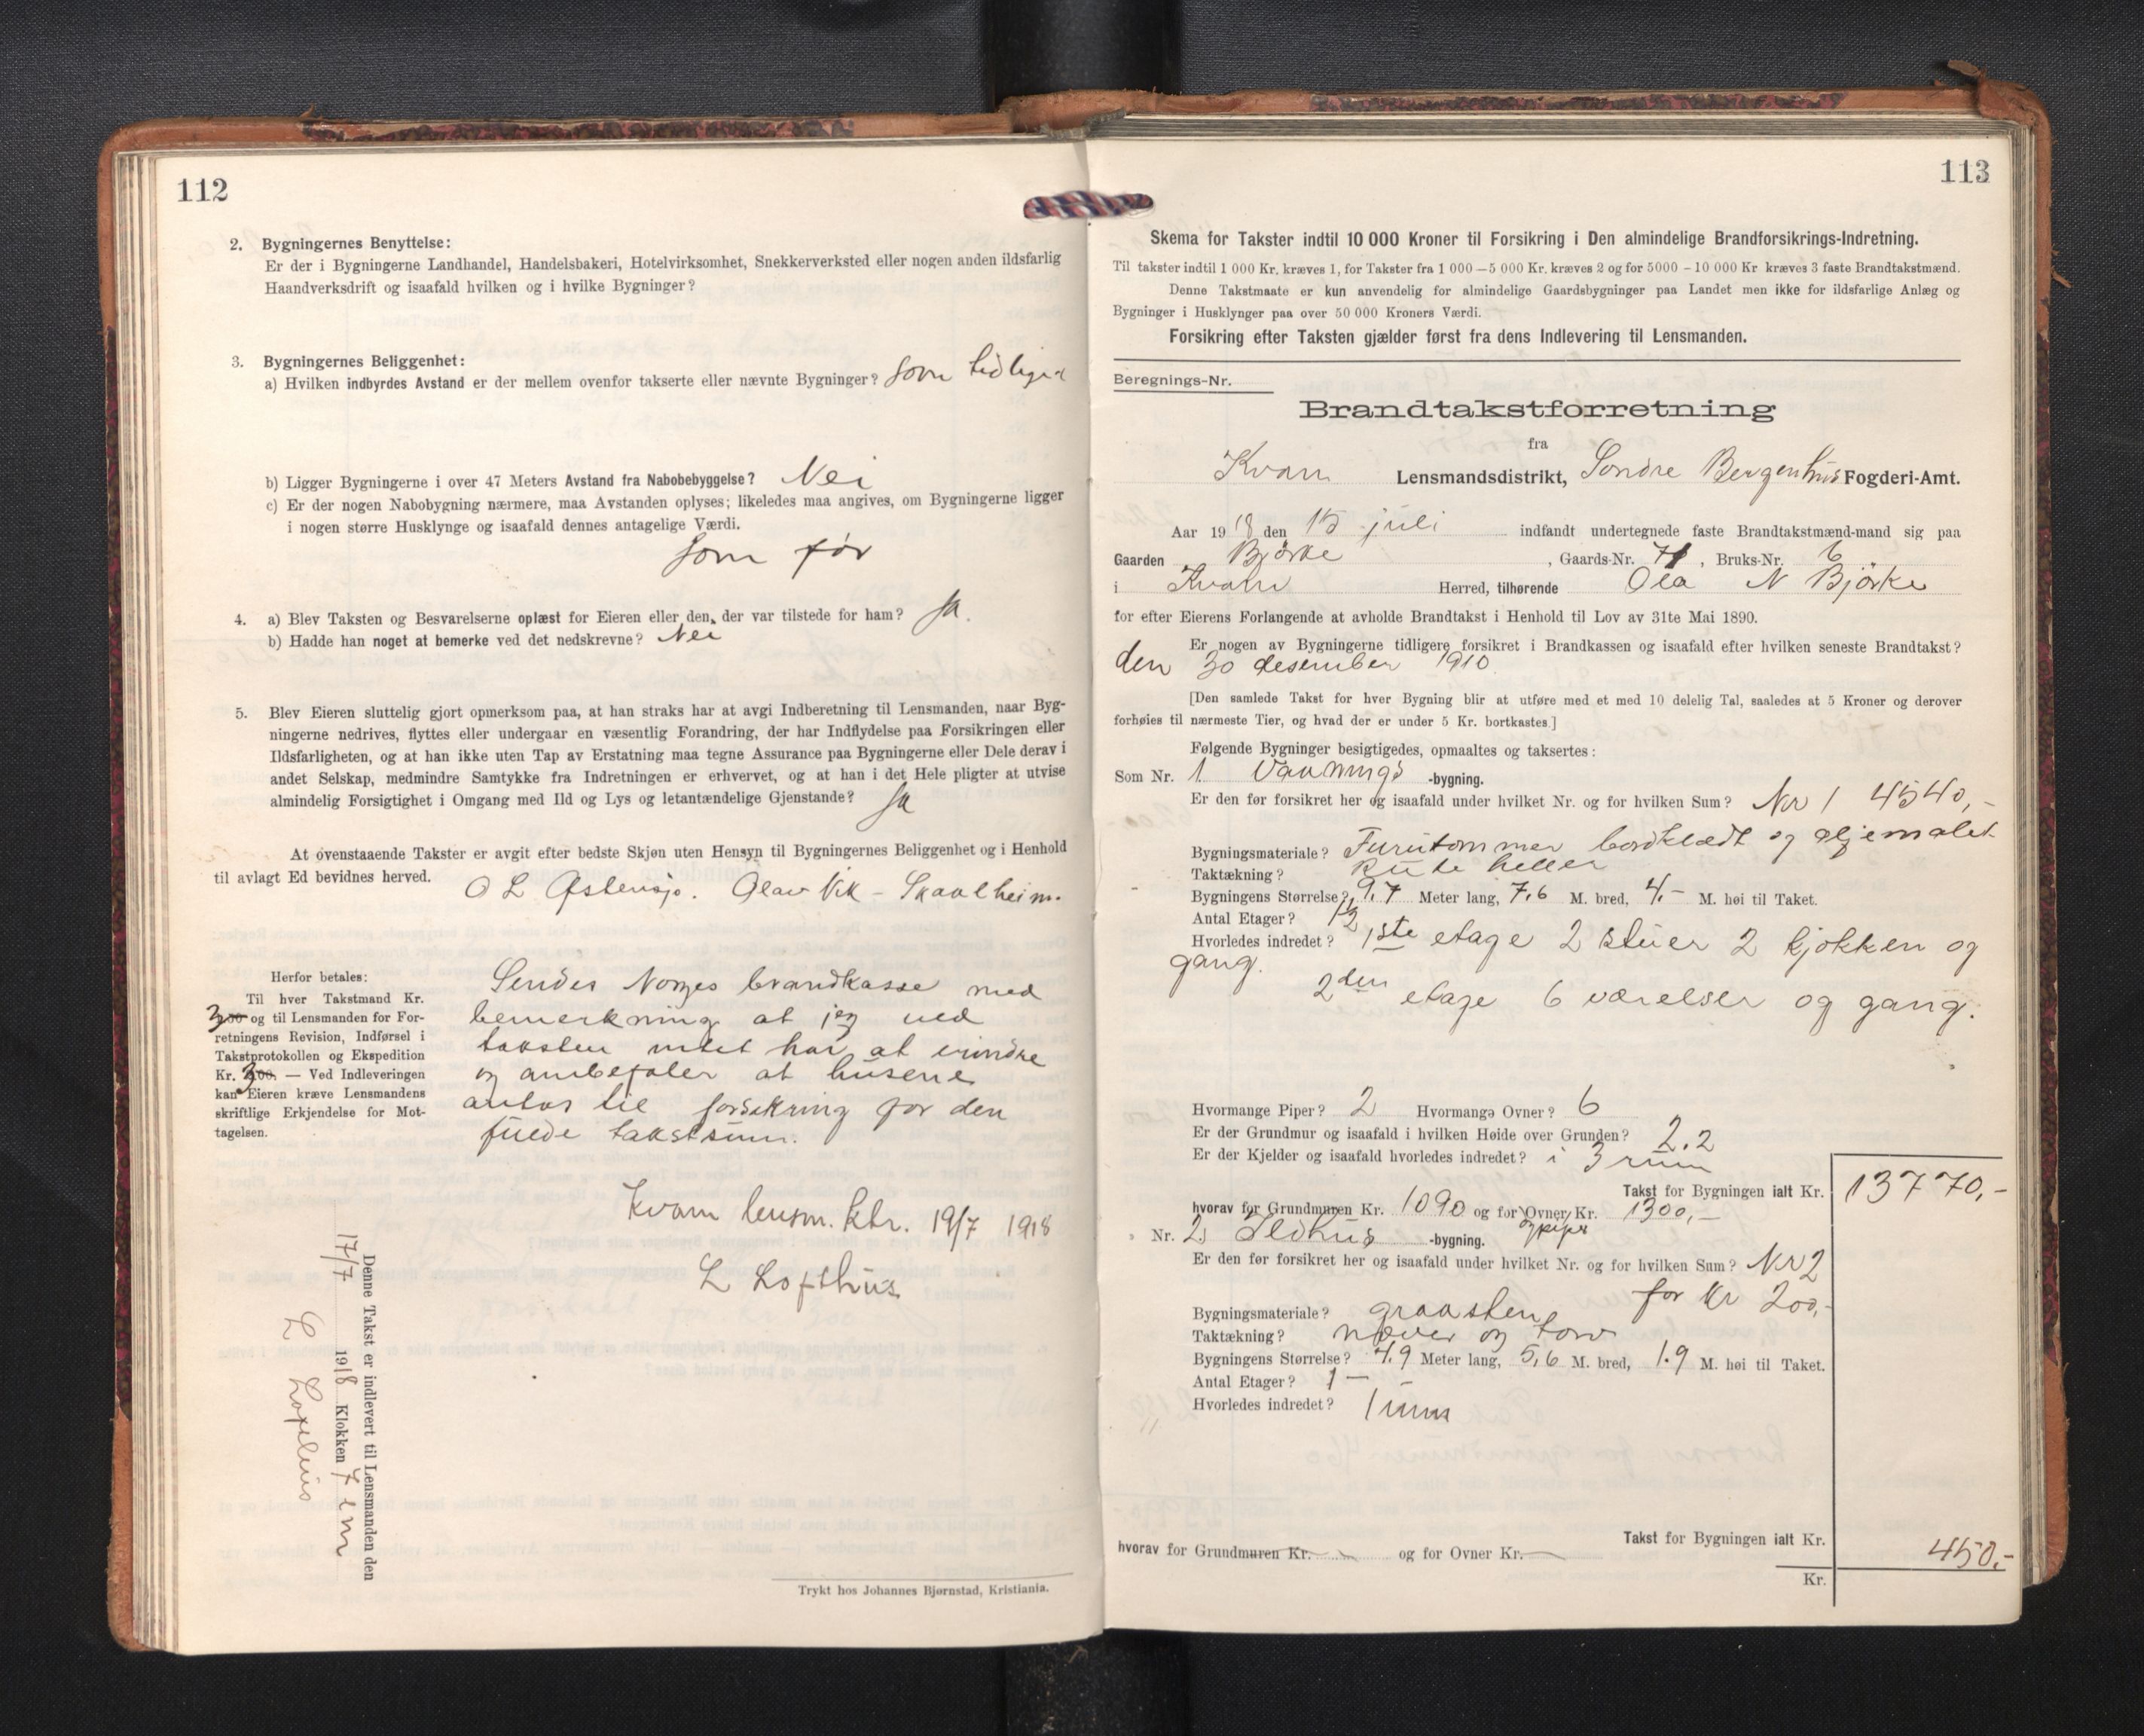 112
2. Bygningernes Benyttelse:
Er der i Bygningerne Landhandel, Handelsbakeri, Hotelvirksomhet, Snekkerverksted eller nogen anden ildsfarlig
Haandverksdrift og isaafald hvilken og i hvilke Bygninger?
3. Bygningernes Beliggenhet:
a) Hvilken indbyrdes Avstand er der mellem ovenfor takserte eller nævnte Bygninger? som tidligere
b) Ligger Bygningerne i over 47 Meters Avstand fra Nabobebyggelse? Nei
c) Er der nogen Nabobygning nærmere, maa Avstanden oplyses; likeledes maa angives, om Bygningerne ligger
i nogen større Husklynge og isaafald dennes antagelige Værdi.
som før
4. a) Blev Taksten og Besvarelserne oplæst for Eieren eller den, der var tilstede for ham? Ja.
b) Hadde han noget at bemerke ved det nedskrevne? Nei
5. Blev Eieren sluttelig gjort opmerksom paa, at han straks har at avgi Indberetning til Lensmanden, naar Byg-
ningerne nedrives, flyttes eller undergaar en væsentlig Forandring, der har Indflydelse paa Forsikringen eller
Ildsfarligheten, og at han ikke uten Tap av Erstatning maa tegne Assurance paa Bygningerne eller Dele derav i
andet Selskap, medmindre Samtykke fra Indretningen er erhvervet, og at han i det Hele pligter at utvise
almindelig Forsigtighet i Omgang med Ild og Lys og letantændelige Gjenstande? Ja
At ovenstaaende Takster er avgit efter bedste Skjøn uten Hensyn til Bygningernes Beliggenhet og i Henhold
til avlagt Ed bevidnes herved. O L Østensjø. Olav Vik - Skaalheim.
Herfor betales:
Til hver Takstmand Kr.
3 og til Lensmanden for For-
retningens Revision, Indførsel i
Takstprotokollen og Ekspedition
Kr. 3 — Ved Indleveringen
kan Eieren kræve Lensmandens
skriftlige Erkjendelse for Mot-
tagelsen.
Sendes Norges brandkasse med
bemerkning at jeg ved
taksten intet har at erindre
og anbefaler at husene
antas til forsikring for den
fulde takstsum.
Kvam lensm. ktr. 19/7 1918
L Lofthus
Denne Takst er indlevert til Lensmanden den
17/7 1918 Klokken 7 em
L Lofthus
Trykt hos Johannes Bjørnstad, Kristiania.
113
Skema for Takster indtil 10 000 Kroner til Forsikring i Den almindelige Brandforsikrings-Indretning.
Til takster indtil 1 000 Kr. kræves 1, for Takster fra 1 000 — 5 000 Kr. kræves 2 og for 5000 - 10 000 Kr kræves 3 faste Brandtakstmænd.
Denne Takstmaate er kun anvendelig for almindelige Gaardsbygninger paa Landet men ikke for ildsfarlige Anlæg og
Bygninger i Husklynger paa over 50 000 Kroners Værdi.
Forsikring efter Taksten gjælder først fra dens Indlevering til Lensmanden.
Beregnings-Nr.
Brandtakstforretning
fra
Kvam Lensmandsdistrikt, Søndre Bergenhus Fogderi-Amt.
Aar 1918 den 15 juli indfandt undertegnede faste Brandtakstmænd-mand sig paa
Gaarden Bjørke, Gaards-Nr. 71, Bruks-Nr. 6
i Kvam Herred, tilhørende Ola N Bjørke
for efter Eierens Forlangende at avholde Brandtakst i Henhold til Lov av 31te Mai 1890.
Er nogen av Bygningerne tidligere forsikret i Brandkassen og isaafald efter hvilken seneste Brandtakst?
den 30 desember 1910
[Den samlede Takst for hver Bygning blir at utføre med et med 10 delelig Tal, saaledes at 5 Kroner og derover
forhøies til nærmeste Tier, og hvad der er under 5 Kr. bortkastes.]
Følgende Bygninger besigtigedes, opmaaltes og taksertes:
Som Nr. 1 Vaanings -bygning.
Er den før forsikret her og isaafald under hvilket Nr. og for hvilken Sum? Nr 1 4540,-
Bygningsmateriale? Furutømmer bordklædt og oljemalet
Taktækning? Rute heller
Bygningens Størrelse? 9,7 Meter lang, 7,6 M. bred, 4,- M. høi til Taket.
Antal Etager? 1½
Hvorledes indredet? 1ste etage 2 stuer 2 kjøkken og
gang.
2den etage 6 værelser og gang.
Hvormange Piper? 2 Hvormange Ovner? 6
Er der Grundmur og isaafald i hvilken Høide over Grunden? 2.2
Er der Kjelder og isaafald hvorledes indredet? i 3 rum
Takst for Bygningen ialt Kr. 13770,-
hvorav for Grundmuren Kr. 1090 og for Ovner Kr. 1300,-
og piper
Nr. 2. Ildhus -bygning.
Er den før forsikret her og isaafald under hvilket Nr. og for hvilken Sum? Nr 2
for Kr 200,-
Bygningsmateriale? graasten
Taktækning? næver og torv
Bygningens Størrelse? 7.9 Meter lang, 5,6 M. bred, 1.9 M. høi til Taket.
Antal Etager? 1 —
Hvorledes indredet? 1 rum
Takst for Bygningen ialt Kr. 450,-
hvorav for Grundmuren Kr. — og for Ovner Kr. —
Kr.